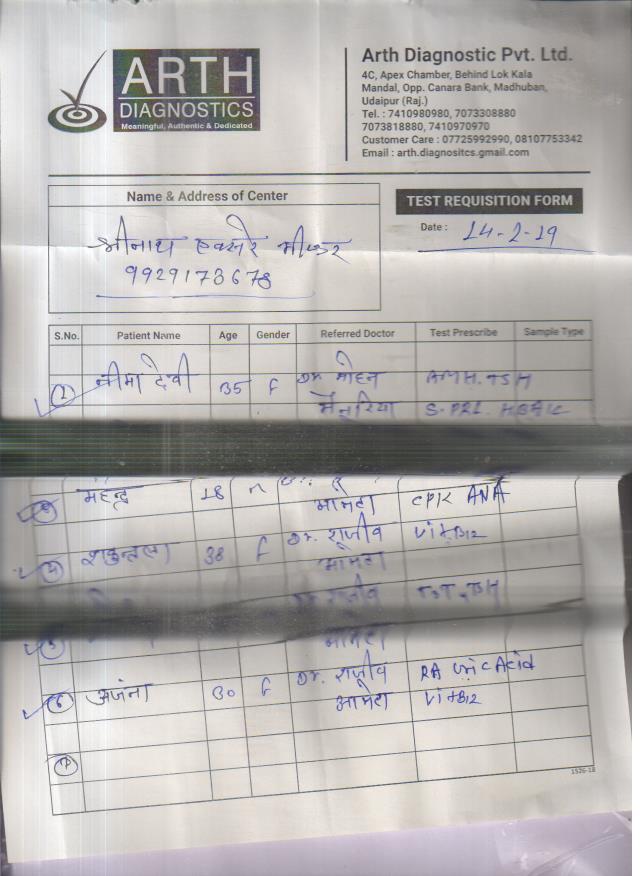 ARTH
DIAGNOSTICS
Meaningful, Authentic & Dedicated
Arth Diagnostic Pvt. Ltd.
4C, Apex Chamber, Behind Lok Kala
Mandal, Opp. Canara Bank, Madhuban,
Udaipur (Raj.)
Tel. : 7410980980, 7073308880
7073818880, 7410970970
Customer Care : 07725992990, 08107753342
Email : arth.diagnositcs.gmail.com
Name & Address of Center
TEST REQUISITION FORM
श्रीनाथ एक्सरे
9929173678
Date : 14-2-19
S.No. Patient Name Age Gender Referred Doctor Test Prescribe Sample Type
नीमा देवी 35 F Dr. मोहन AMH. TSH
S. PRL. HBA1C
महेन्द्र 18 CPK ANA
आमेटा
शकुन्तला 38 F Dr. राजीव Vit B12
आमेटा
Dr राजीव T3T4TSH
आमेटा
6 अंजना 30 F Dr. राजीव RA Uric Acid
आमेटा Vit B12
1526-18